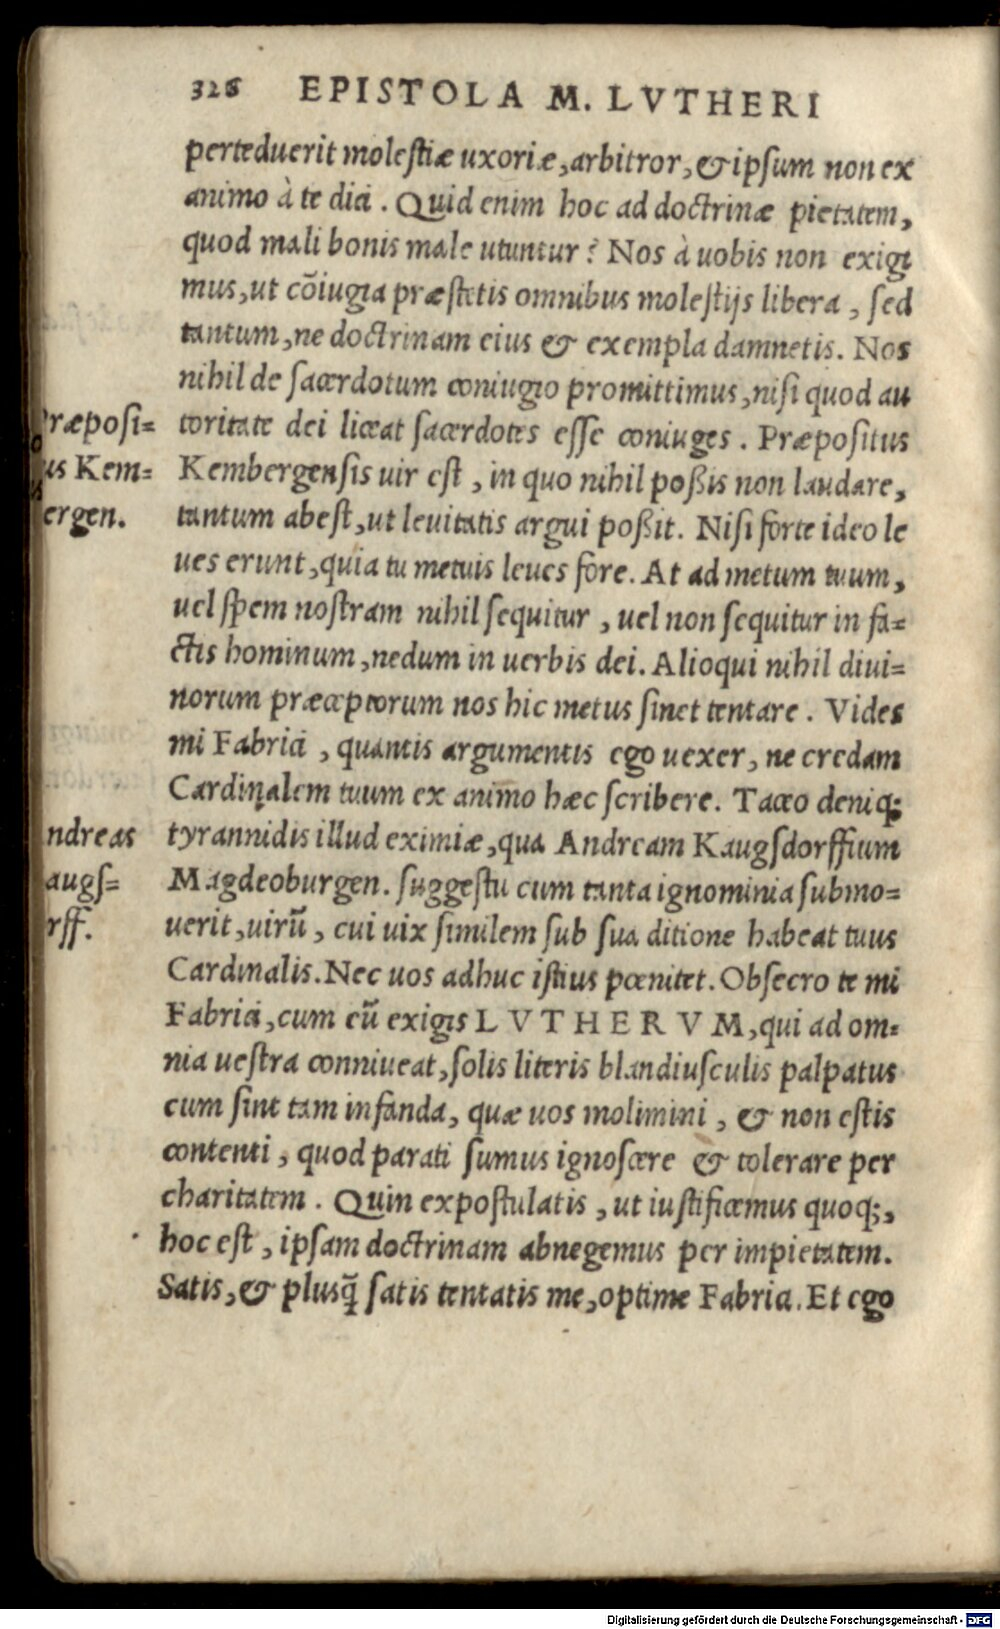 326 EPISTOLA M. LVTHERI
perteduerit molestiæ uxoriæ, arbitror, & ipsum non ex
animo à te dici. Quid enim hoc ad doctrinæ pietatem,
quod mali bonis male utuntur? Nos à uobis non exigi
mus, ut cõiugia præstetis omnibus molestijs libera, sed
tantum, ne doctrinam eius & exempla damnetis. Nos
nihil de sacerdotum coniugio promittimus, nisi quod au
toritate dei liceat sacerdotes esse coniuges. Præpositus
Kembergensis uir est, in quo nihil poßis non laudare,
tantum abest, ut leuitatis argui poßit. Nisi forte ideo le
ues erunt, quia tu metuis leues fore. At ad metum tuum,
uel spem nostram nihil sequitur, uel non sequitur in fa=
ctis hominum, nedum in uerbis dei. Alioqui nihil diui=
norum præceptorum nos hic metus sinet tentare. Vides
mi Fabrici, quantis argumentis ego uexer, ne credam
Cardinalem tuum ex animo hæc scribere. Taceo deniq;
tyrannidis illud eximiæ, qua Andream Kaugsdorffium
Magdeoburgen. suggestu cum tanta ignominia submo=
uerit, uirũ, cui uix similem sub sua ditione habeat tuus
Cardinalis. Nec uos adhuc istius pœnitet. Obsecro te mi
Fabrici, cum eũ exigis LVTHERVM, qui ad om=
nia uestra conniueat, solis literis blandiusculis palpatus
cum sint tam infanda, quæ uos molimini, & non estis
contenti, quod parati sumus ignoscere & tolerare per
charitatem. Quin expostulatis, ut iustificemus quoq;,
hoc est, ipsam doctrinam abnegemus per impietatem.
Satis, & plusq̃ satis tentatis me, optime Fabrici. Et ego
Præposi=
us Kem=
ergen.
ndreas
augs=
rff.
Digitalisierung gefördert durch die Deutsche Forschungsgemeinschaft - DFG